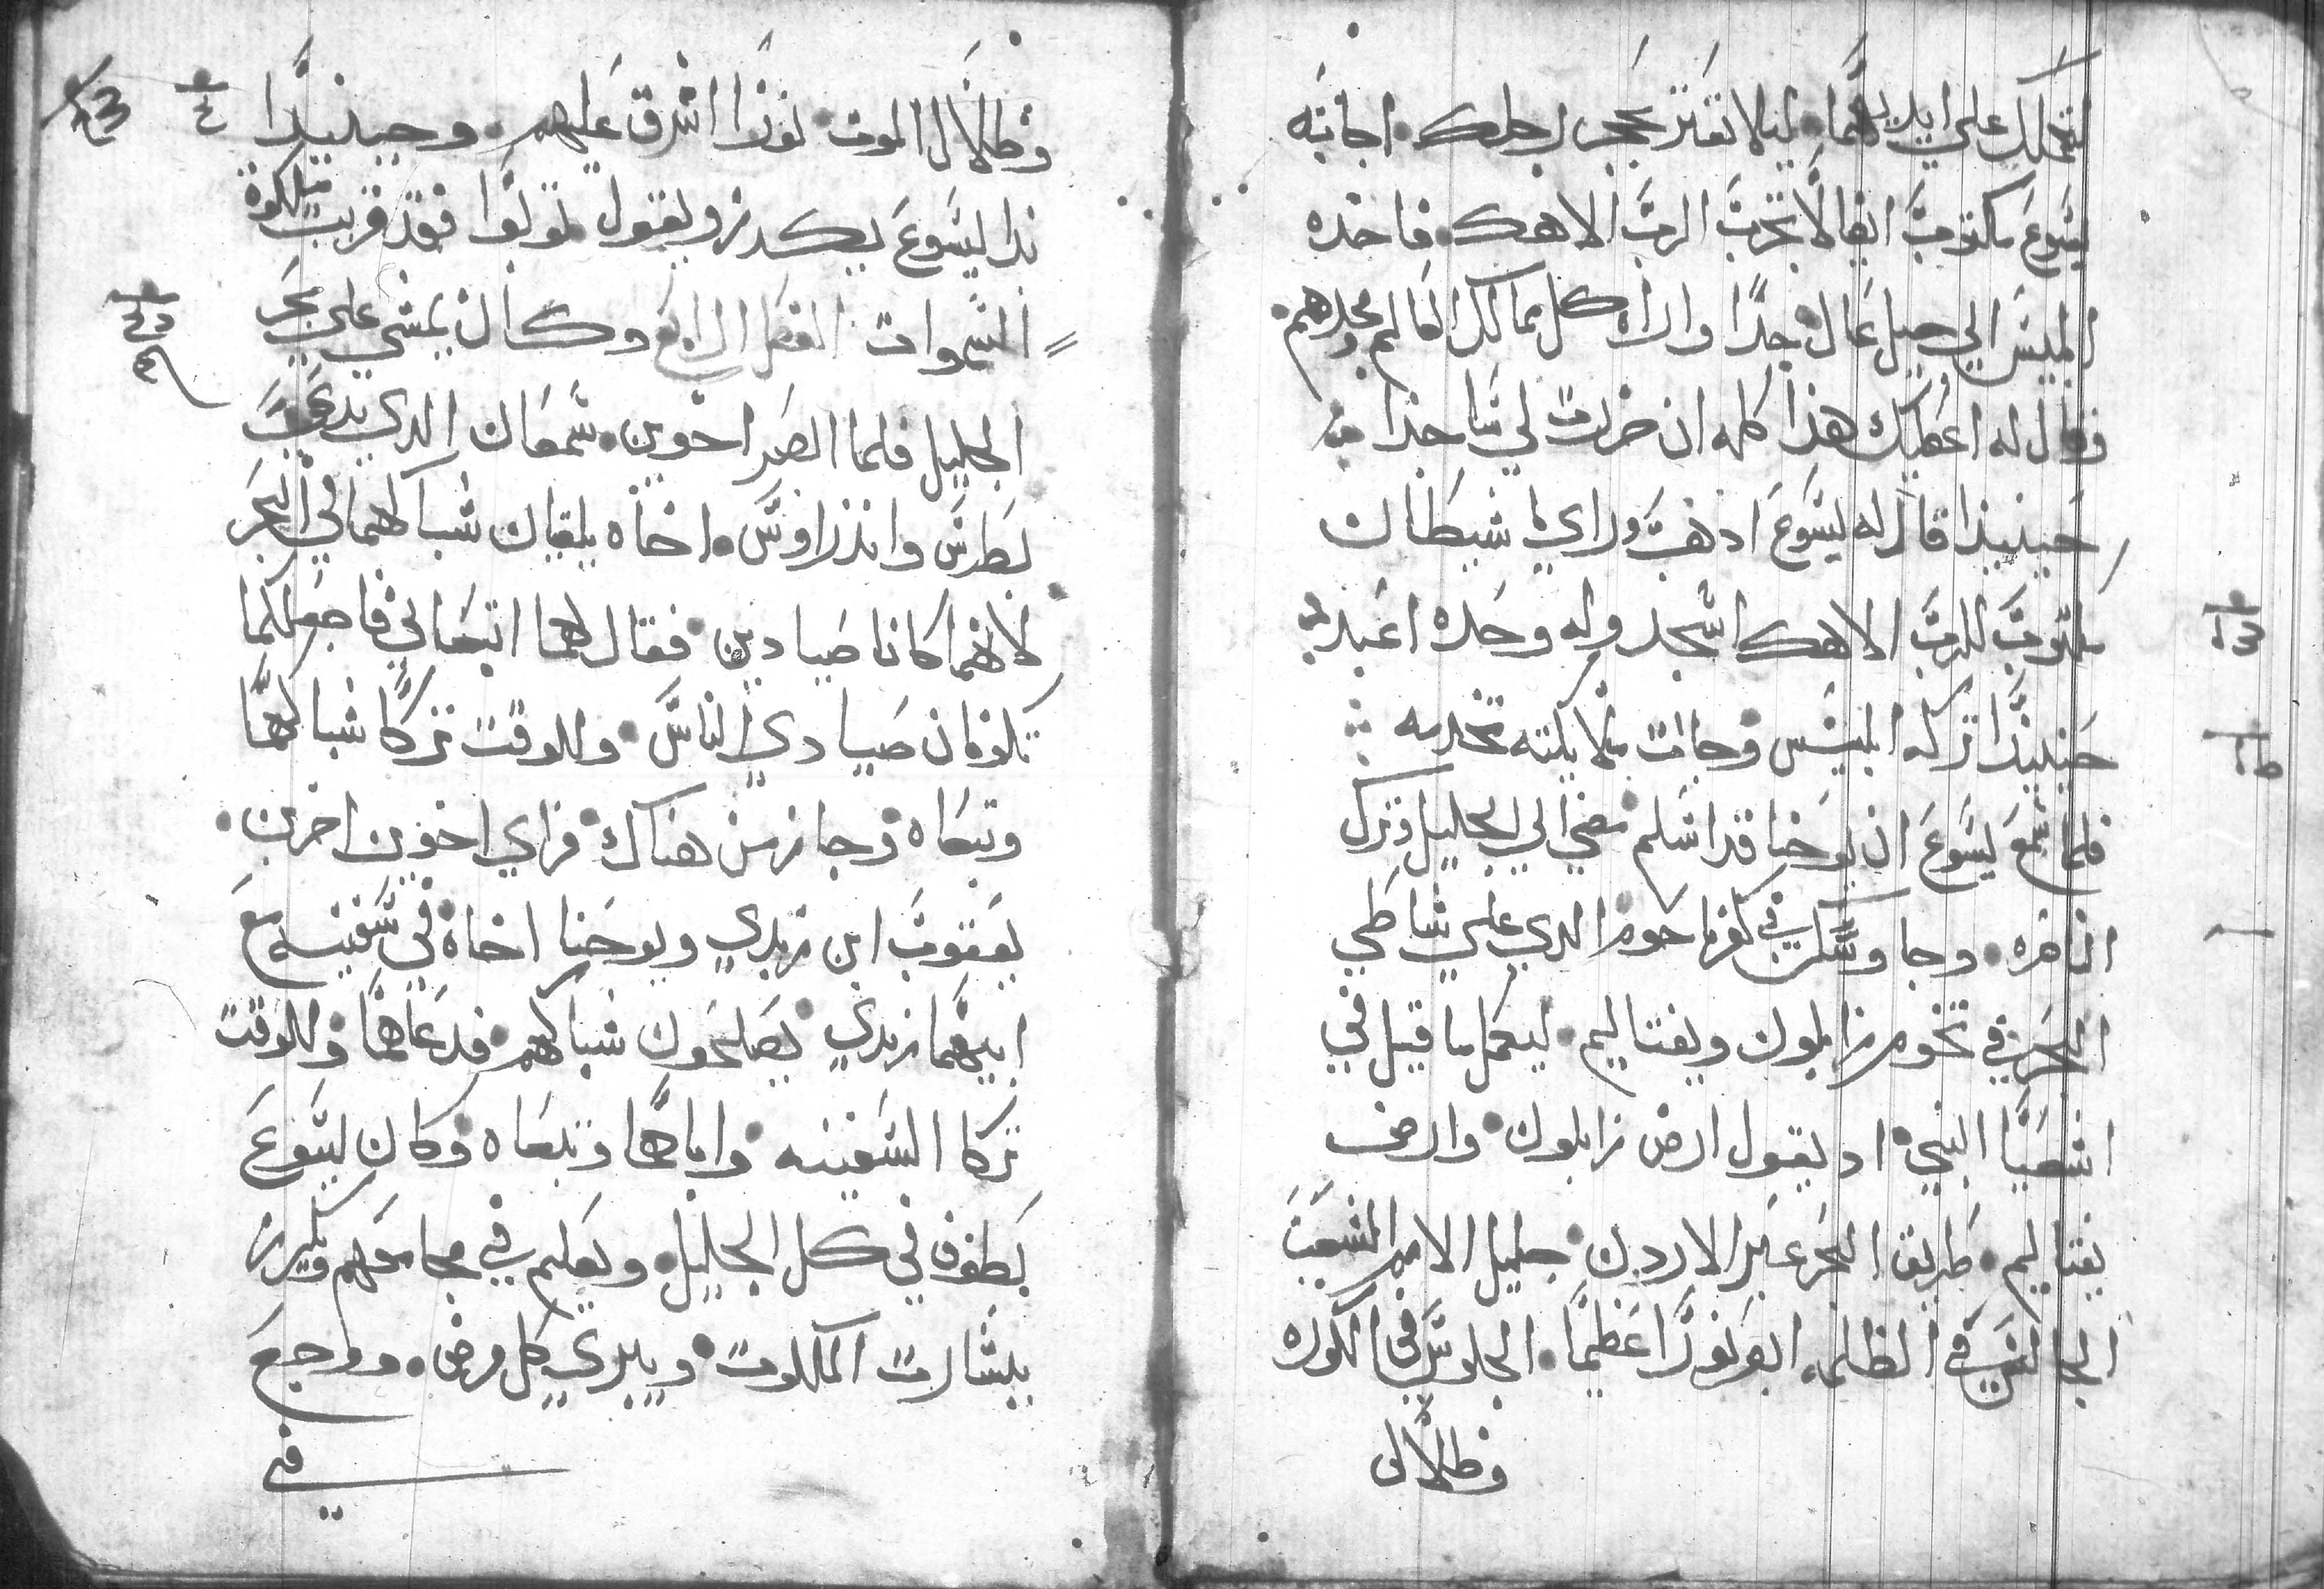 لتحملك على ايديهما ليلا تعتر بحجر رجلك اجابه
يسوع مكتوب ايضا لا تجرب الرب الاهك فاخده
ابليس الي جبل عال جدا واراه كل ممالك العالم ومجدهم
فقال له اعطيك هذا كله ان خررت لي ساجدا
حينيدا قال له يسوع ادهب وراي يا شيطان
مكتوب للرب الاهك اسجد وله وحده اعبد
حينيدا تركه ابليس وجات ملايكته تخدمه
فلما سمع يسوع ان يوحنا قد اسلم مضي الي الجليل وترك
الناصره وجا وسكن في كفرناحوم الدي علي شاطي
البحر في تخوم زابلون ونفتاليم ليكمل ما قيل في
اشعيا النبي اد يقول ارض زابلون وارض
نفتاليم طريق البحر عبر الاردن جليل الامم الشعب
الجالس في الظلمه ابصر نورا عظيما الجلوس في الكوره
وظلال
وظلال الموت نورا اشرق عليهم وحينيدا
بدا يسوع يكرز ويقول توبوا فقد قربت ملكوة
السموات الفصل الرابع وكان يمشي علي بحر
الجليل فلما ابصر اخوين سمعان الدي يدعي
بطرس واندراوس اخاه يلقيان شباكهما في البحر
لانهما كانا صيادين فقال لهما اتبعاني فاجعلكما
تكونان صيادي الناس وللوقت تركا شباكهما
وتبعاه وجاز من هناك فراي اخوين اخرين
يعقوب ابن زبدي ويوحنا اخاه في سفينه مع
ابيهما زبدي يصلحون شباكهم فدعاهما وللوقت
تركا السفينه واباهما وتبعاه وكان يسوع
يطوف في كل الجليل ويعلم في مجامعهم ويكرز
ببشارت الملكوت ويبري كل مرض ووجع
في